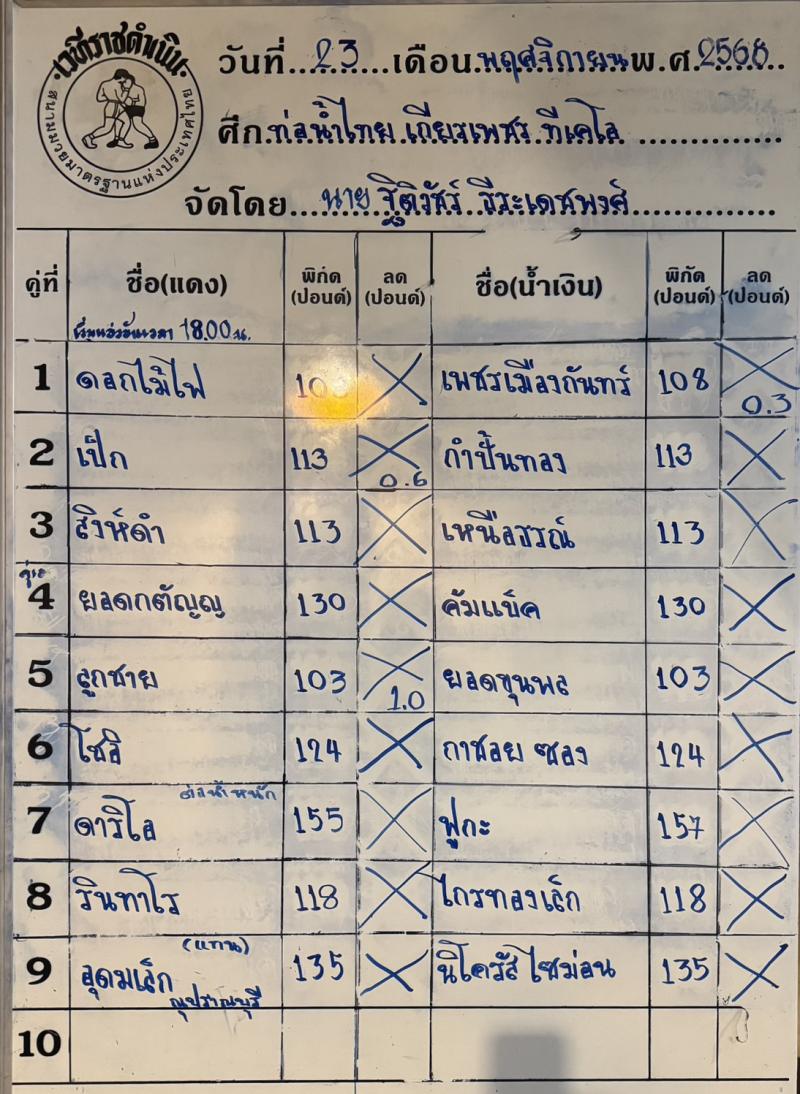 เวทีราชดำเนิน
สนามมวยมาตรฐานแห่งประเทศไทย
วันที่...23...เดือน.พฤศจิกายนพ.ศ.2568
ศึก.ท่อน้ำไทย เกียรเพชร ทีเคโอ
จัดโดย...นาย ฐิติวัชร์ ธีระเดชพงศ์
คู่ที่ ชื่อ(แดง) พิกัด (ปอนด์) ลด (ปอนด์) ชื่อ(น้ำเงิน) พิกัด (ปอนด์) ลด (ปอนด์)
18.00 น.
1 ดอกไม้ไฟ เพชรเมืองกันทร์ 108 0.3
2 เป็ก 113 0.6 กำปั้นทอง 113
3 สิงห์ดำ 113 113
4 ยอดกตัญญู 130 คัมแบ็ค 130
5 ลูกชาย 103 1.0 ยอดขุนพล 103
6 โชลิ 124 กาชอย ซอง 124
ต่อน้ำหนัก
7 ดาริโอ 155 ฟูกะ 157
8 รินทาโร 118 ไกรทองเล็ก 118
(แทน)
9 อุดมเล็ก 135 นิโครัส ไซม่อน 135
ณปราณบุรี
10